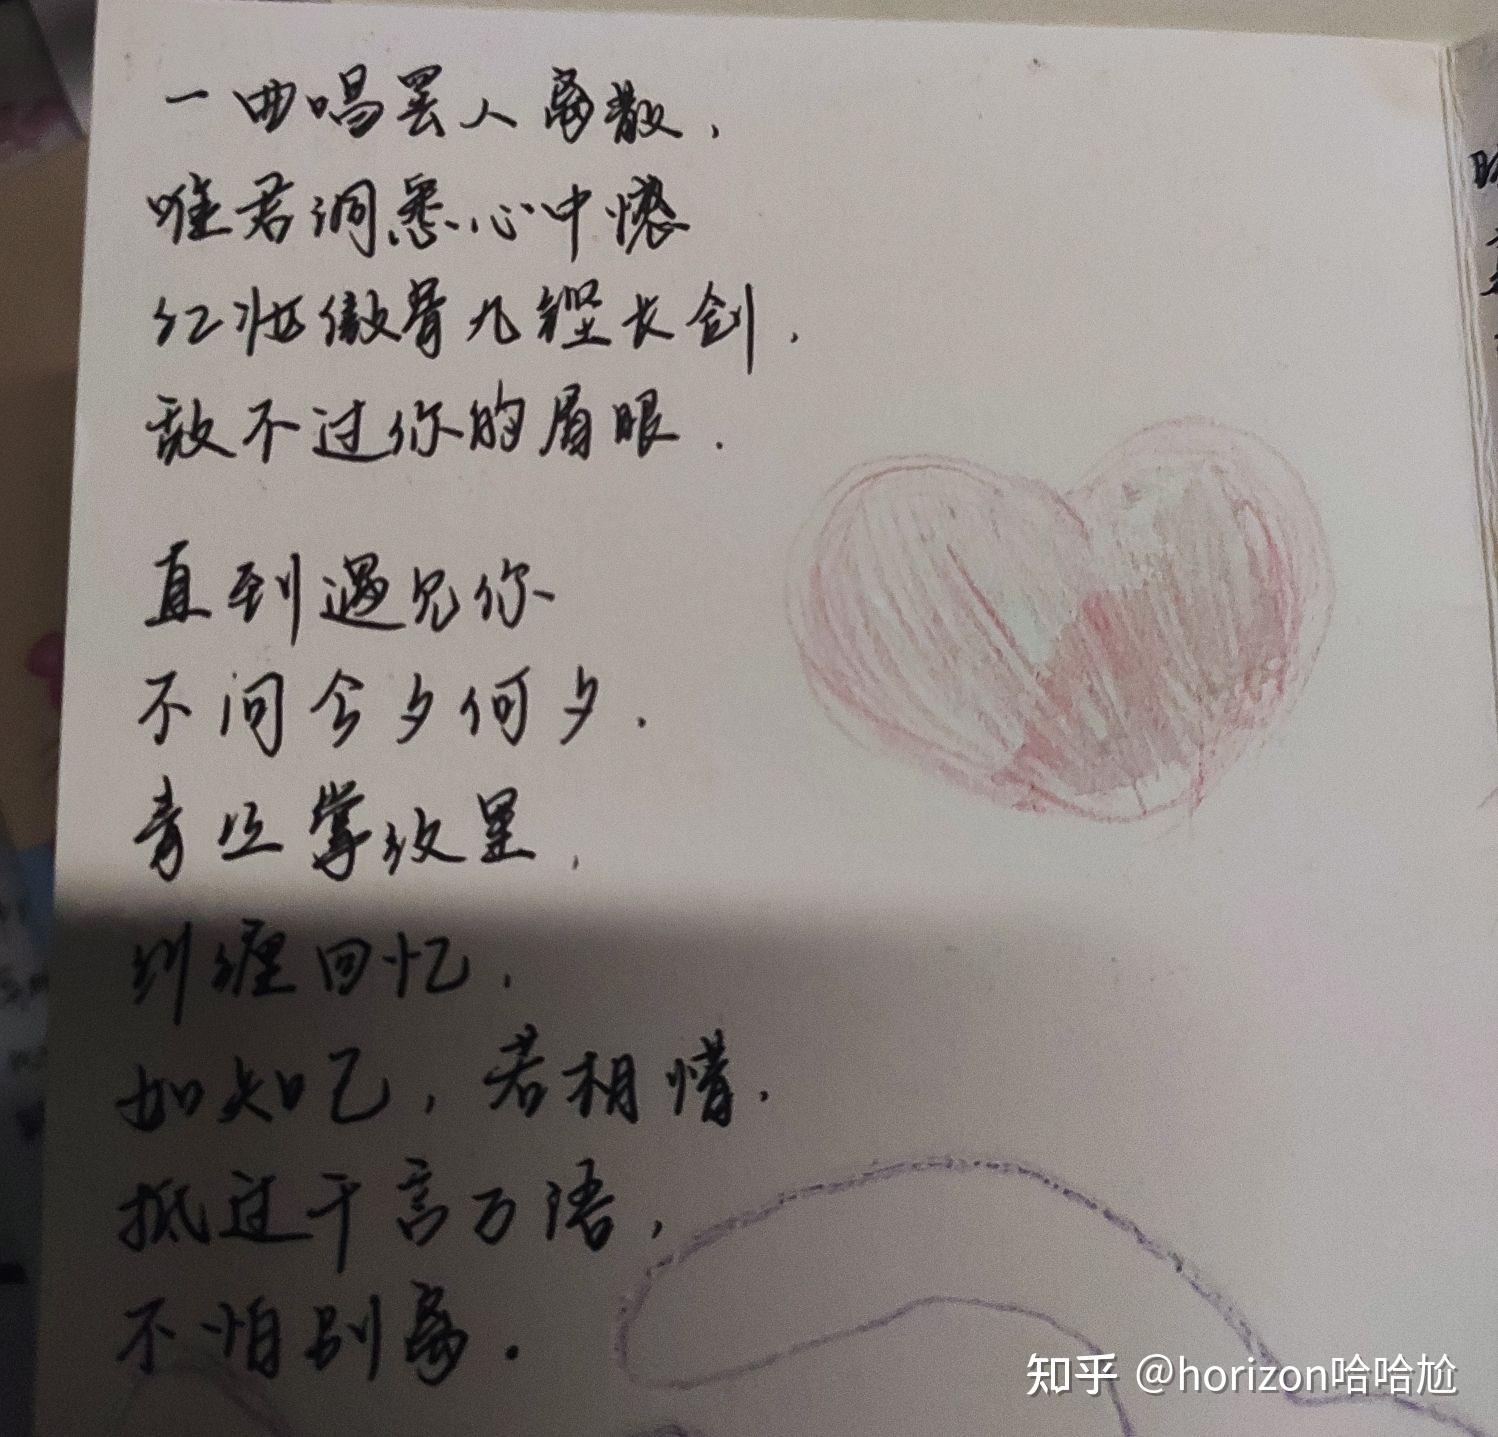 一曲唱罢人离散，
唯君洞悉心中憾
红妆傲骨九铿长剑，
敌不过你的眉眼．
直到遇见你
不问今夕何夕．
青丝掌纹里，
纠缠回忆，
如知己，若相惜，
抵过千言万语，
不怕别离．
知乎 @horizon哈哈尬